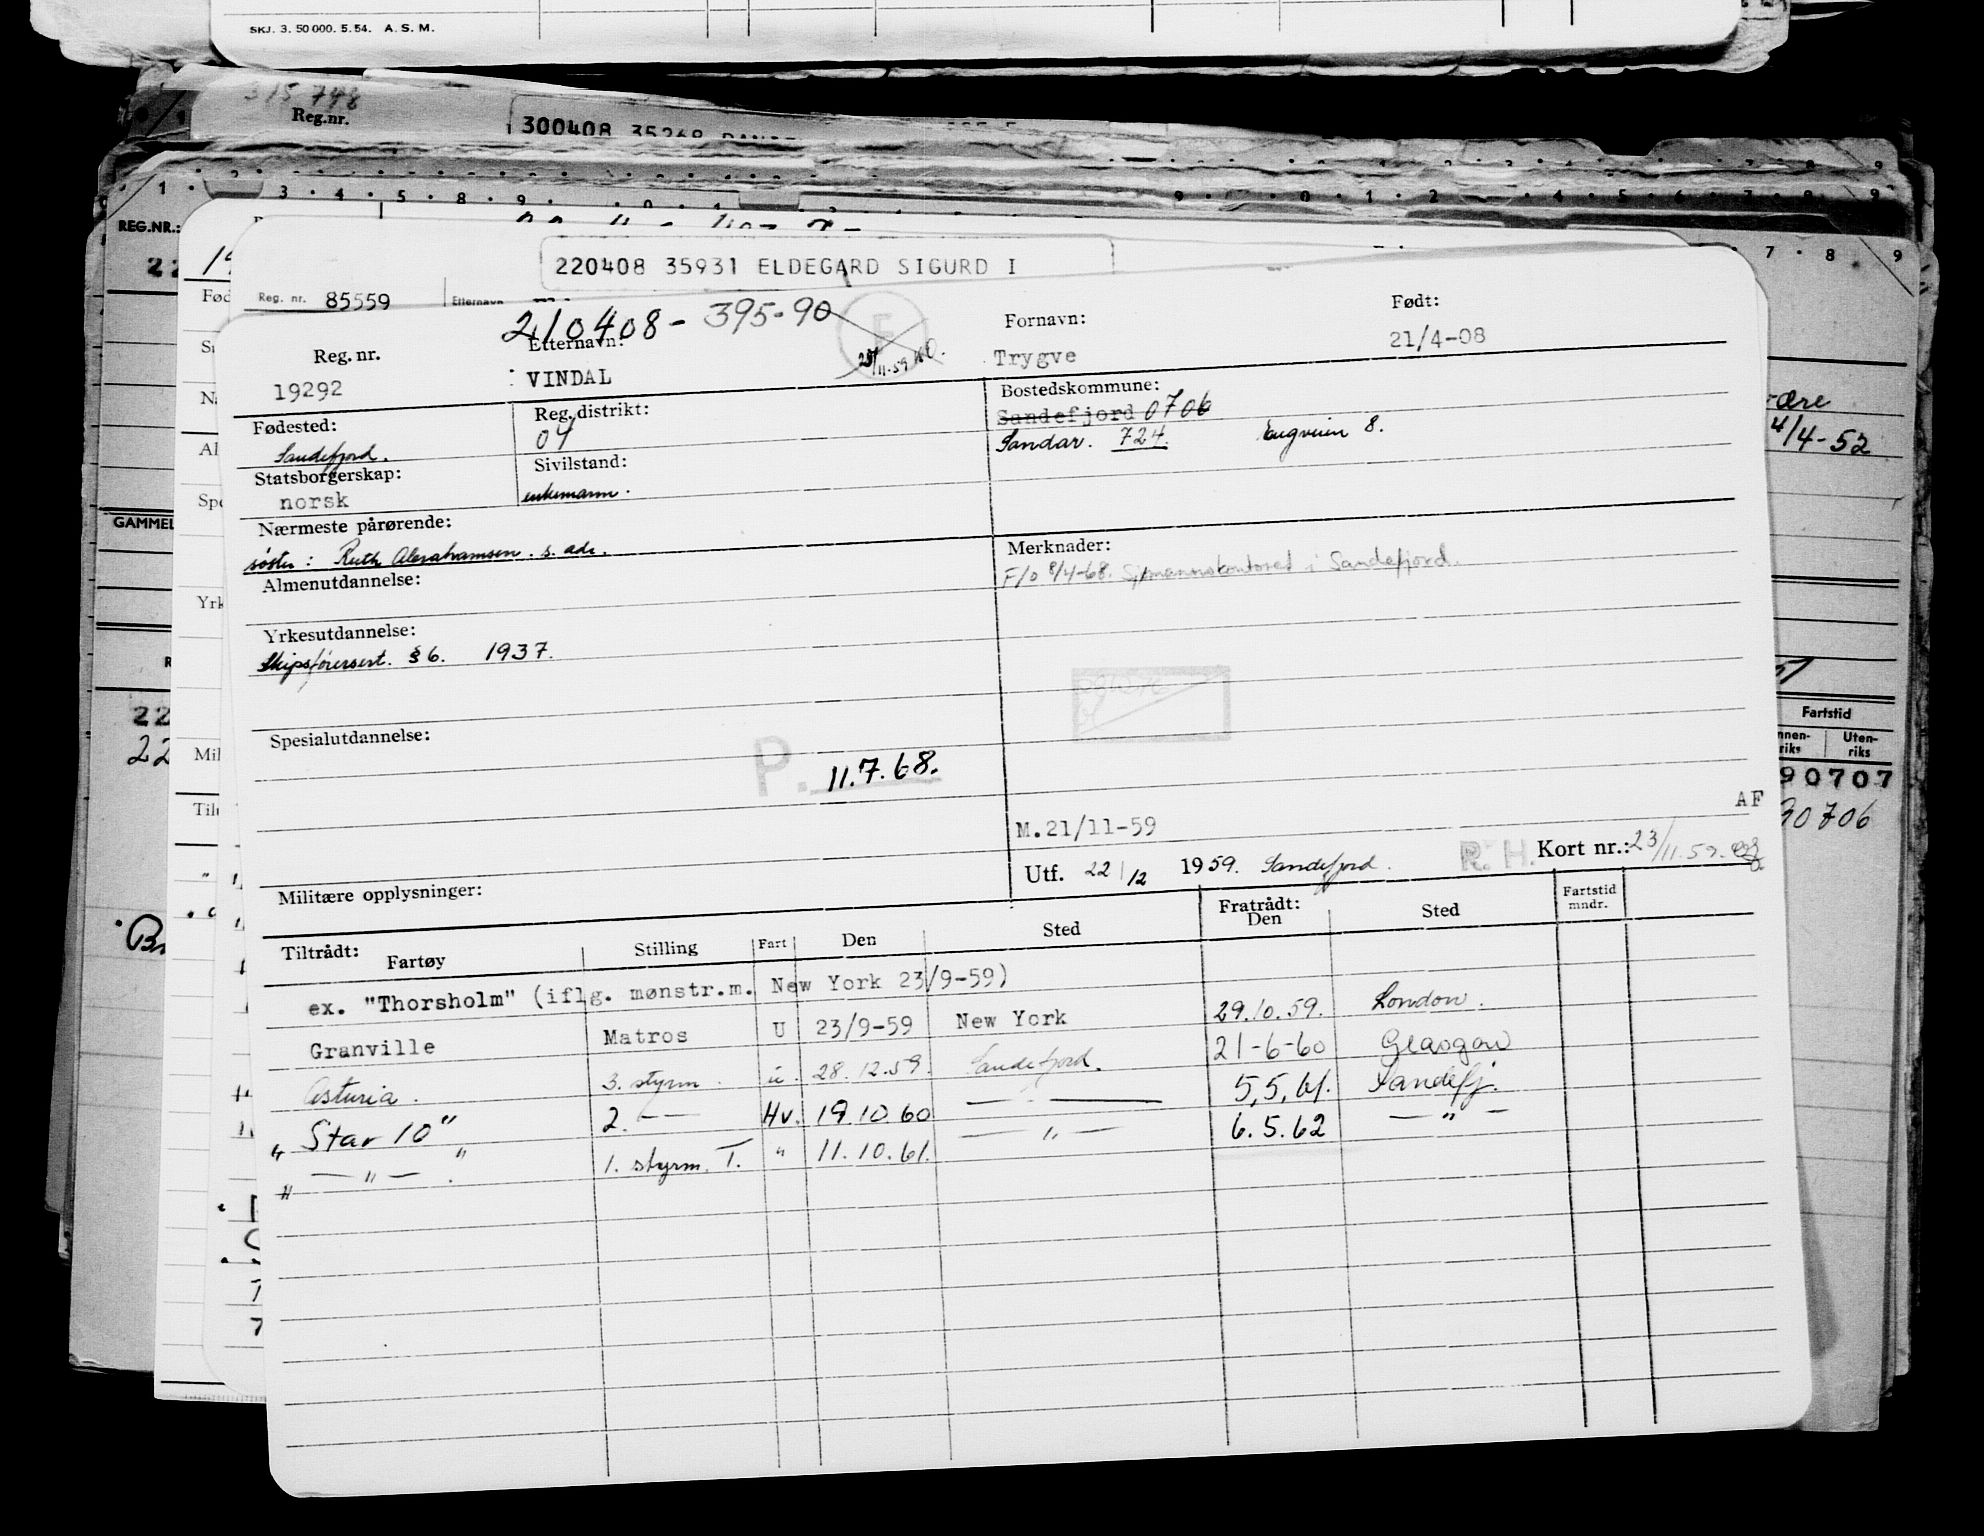 SKJ. 3. 50 000. 5. 54. A. S. M.
315 748
Reg.nr.
300408 35268
1 · 2 3 · 4 · 5 · 8 · 9 · 0 · 1
9 · 0 · 1 · 2 · 3 · 4 · 5 · 6 · 7 · 8 9
REG.NR.:
22
220408 35931 ELDEGARD SIGURD I
7 · 8 9
Reg. nr. 85559 Etternavn
210408 - 395-90
E
Fornavn:
Født:
Reg. nr.
Etternavn:
Trygve
21/4-08
19292
VINDAL
11-59
Bostedskommune:
Fødested:
Reg. distrikt:
Sandefjord 0706
Sandefjord.
04
Sandar. 724. Engveien 8.
4/4-52
Statsborgerskap:
Sivilstand:
norsk
enkemann.
GAMMEL
Nærmeste pårørende:
søster: Ruth Abrahamsen. s. adr.
Merknader:
F/o 8/4-68. Sjømannskontoret i Sandefjord.
Almenutdannelse:
Yrkesutdannelse:
Skipsførersert. §6. 1937.
Spesialutdannelse:
P. 11.7.68.
Fartstid
Uten-
riks
90707
AF
M.21/11-59
30706
R. H. Kort nr.: 23/11.59.
Utf. 22/12 1959. Sandefjord.
Militære opplysninger:
Tiltrådt:
Fartøy
Stilling
Fart
Den
Sted
Fratrådt:
Den
Sted
Fartstid
mndr.
ex. "Thorsholm" (iflg. mønstr.m. New York 23/9-59)
Granville Matros U 23/9-59 New York 29.10.59. London.
Asturia. 3. styrm. u. 28.12.59. Sandefjord. 21-6-60 Glasgow
" Star 10" 2. — — Hv. 19.10.60 — — 5,5,61. Sandefj.
" — " — " 1. styrm. T. " 11.10.61. — " — 6.5.62 — " —